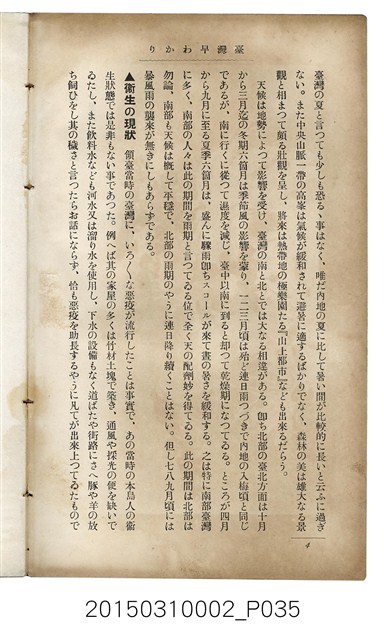 臺灣早わかり
臺灣の夏と言つても少しも恐るゝ事はなく、唯だ內地の夏に比して暑い間が比較的に長いと云ふに過ぎ
ない。また中央山脈一帶の高峯は氣候が緩和されて避暑に適するばかりでなく、森林の美は雄大なる景
觀と相まつて頗る壯觀を呈し、將來は熱帶地の極樂園たる『山上都市』なども出來るだらう。
天候は地勢によつて影響を受け、臺灣の南と北とでは大なる相違がある。卽ち北部の臺北方面は十月
から三月迄の冬期六箇月は季節風の影響を蒙り、一二三月頃は殆ど連日雨つづきで內地の入梅頃と同じ
であるが、南に行くに從つて濕度を減じ、臺中以南に到ると却つて乾燥期になつてゐる。ところが四月
から九月に至る夏季六箇月は、盛んに驟雨卽ちスコールが來て晝の暑さを緩和する。之は特に南部臺灣
に多く、南部の人々は此の期間を雨期と言つてゐる位で全く天の配劑妙を得てゐる。此の期間は北部は
勿論、南部も天候は槪して平穩で、北部の雨期のやうに連日降り續くことはない。但し七八九月頃には
暴風雨の襲來が無きにしもあらずである。
▲衞生の現狀 領臺當時の臺灣に、いろ〱な惡疫が流行したことは事實で、あの當時の本島人の衞
生狀態では是非もない事であつた。例へば其の家屋の多くは竹材土塊で築き、通風や採光の便を缺いで
ゐたし、また飮料水なども河水又は溜り水を使用し、下水の設備もなく道ばたや街路にさへ豚や羊の放
ち飼ひをし其の穢さと言つたらお話にならず、恰も惡疫を助長するやうに凡てが出來上つてゐたもので
4
20150310002_P035